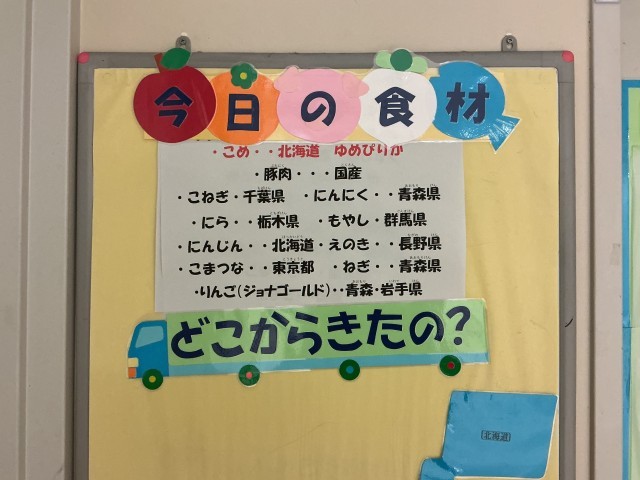 今日の食材
・こめ・・北海道 ゆめぴりか
・豚肉・・・国産
・こねぎ・千葉県 ・にんにく・・青森県
・にら・・栃木県 ・もやし・群馬県
・にんじん・・北海道・えのき・・長野県
・こまつな・・東京都 ・ねぎ・・青森県
・りんご(ジョナゴールド)・・青森・岩手県
どこからきたの?
北海道